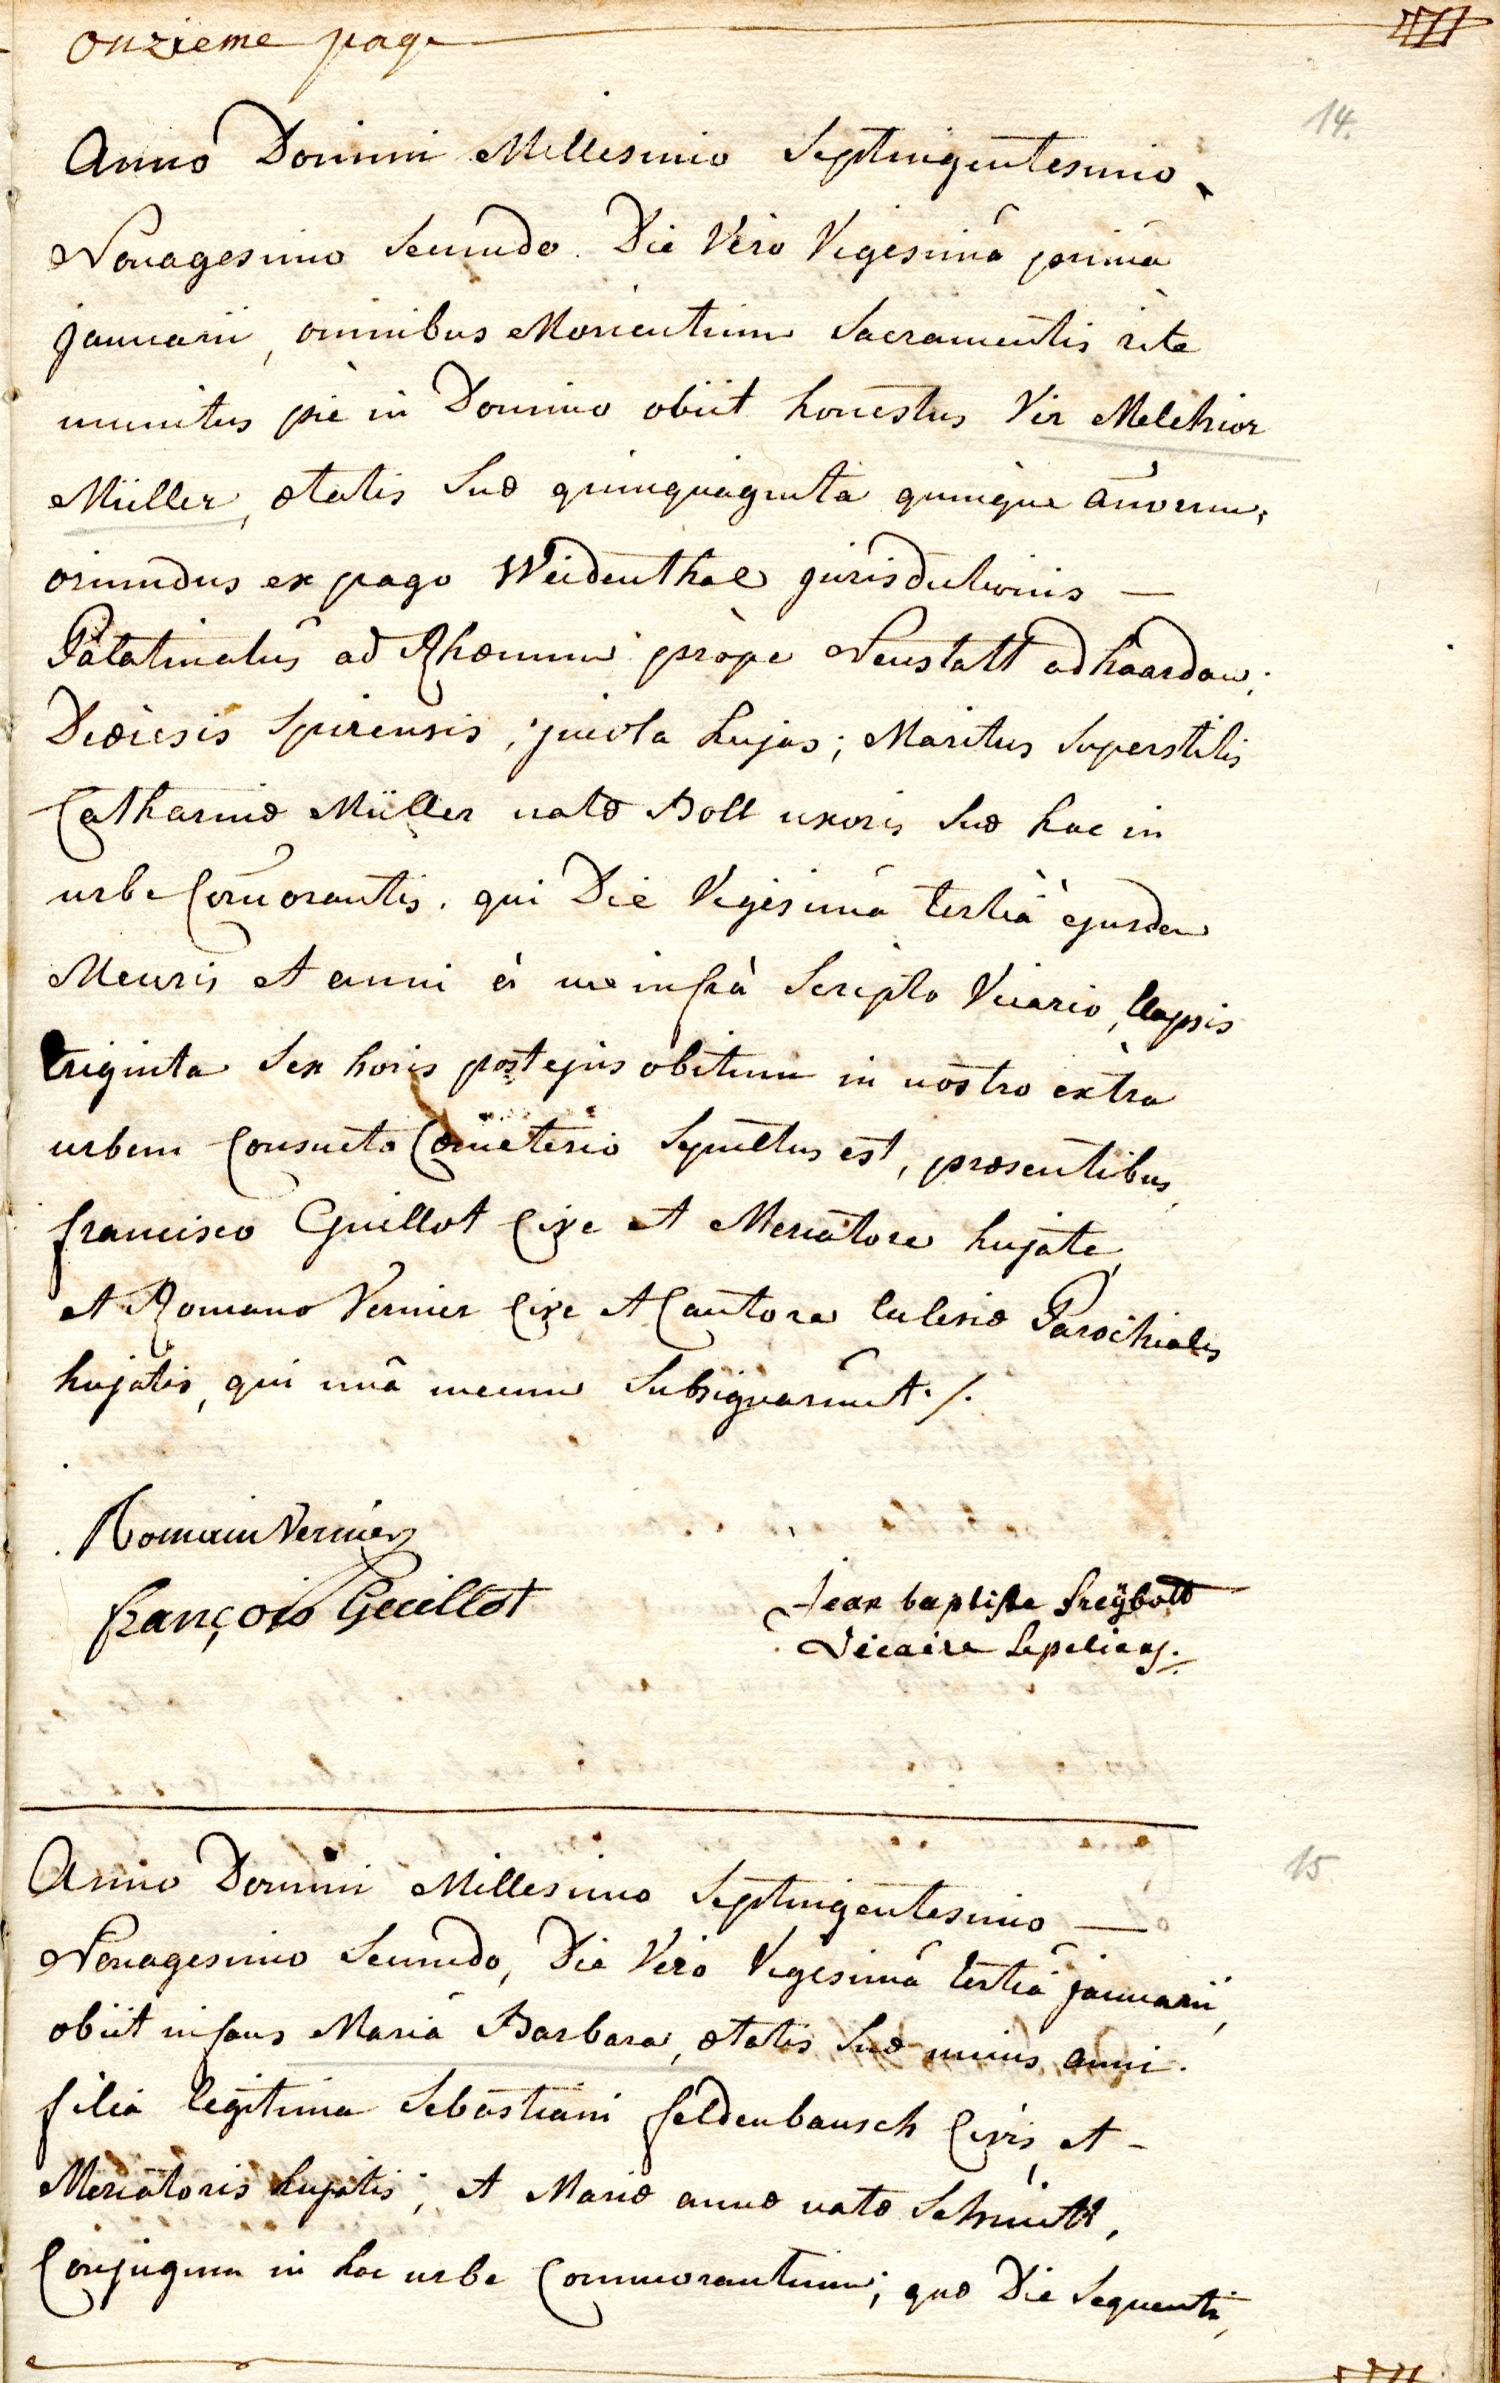 onzieme page
14.
Anno Domini Millesimo Septingentesimo
Nonagesimo Secundo. Die Vero Vigesimâ primâ
januarii, omnibus Morientium Sacramentis rite
munitus piè in Domino obiit honestus Vir Melchior
Müller, ætatis Suæ quinquaginta quinque añorum,
oriundus ex pago Weidenthal jurisdictionis —
Palatinatûs ad Rhænum prope Neustatt ad haardam;
Diœcesis Spirensis, incola hujas; Maritus Superstitis
Catharinæ Müller natæ Boll uxoris Suæ hac in
urbe Com̃orantis. qui Die Vigesimâ tertiâ ejusdem
Mensis et anni à me infrà Scripto Vicario, Elapsis
triginta Sex horis post ejus obitum in nostro extra
urbem Consueto Cœmeterio Sepultus est, præsentibus
francisco Guillot Cive et Mercatore hujate,
et Romano Vernier Cive et Cantore Ecclesiæ Parochialis
hujatis, qui unâ mecum Subsignarunt ./.
Romain Vernier
françois Guillot
Jean baptiste freÿbott
Vicaire
15
Anno Domini Millesimo Septingentesimo —
Nonagesimo Secundo, Die Vero Vigesimâ tertiâ januarii,
obiit infans Maria Barbara, ætatis Suæ unius anni.
filia legitima Sebastiani feldenbausch Civis et -
Mercatoris hujatis, et Mariæ annæ natæ Schmitt,
Conjugum in hac urbe Commorantium; quæ Die Sequenti,